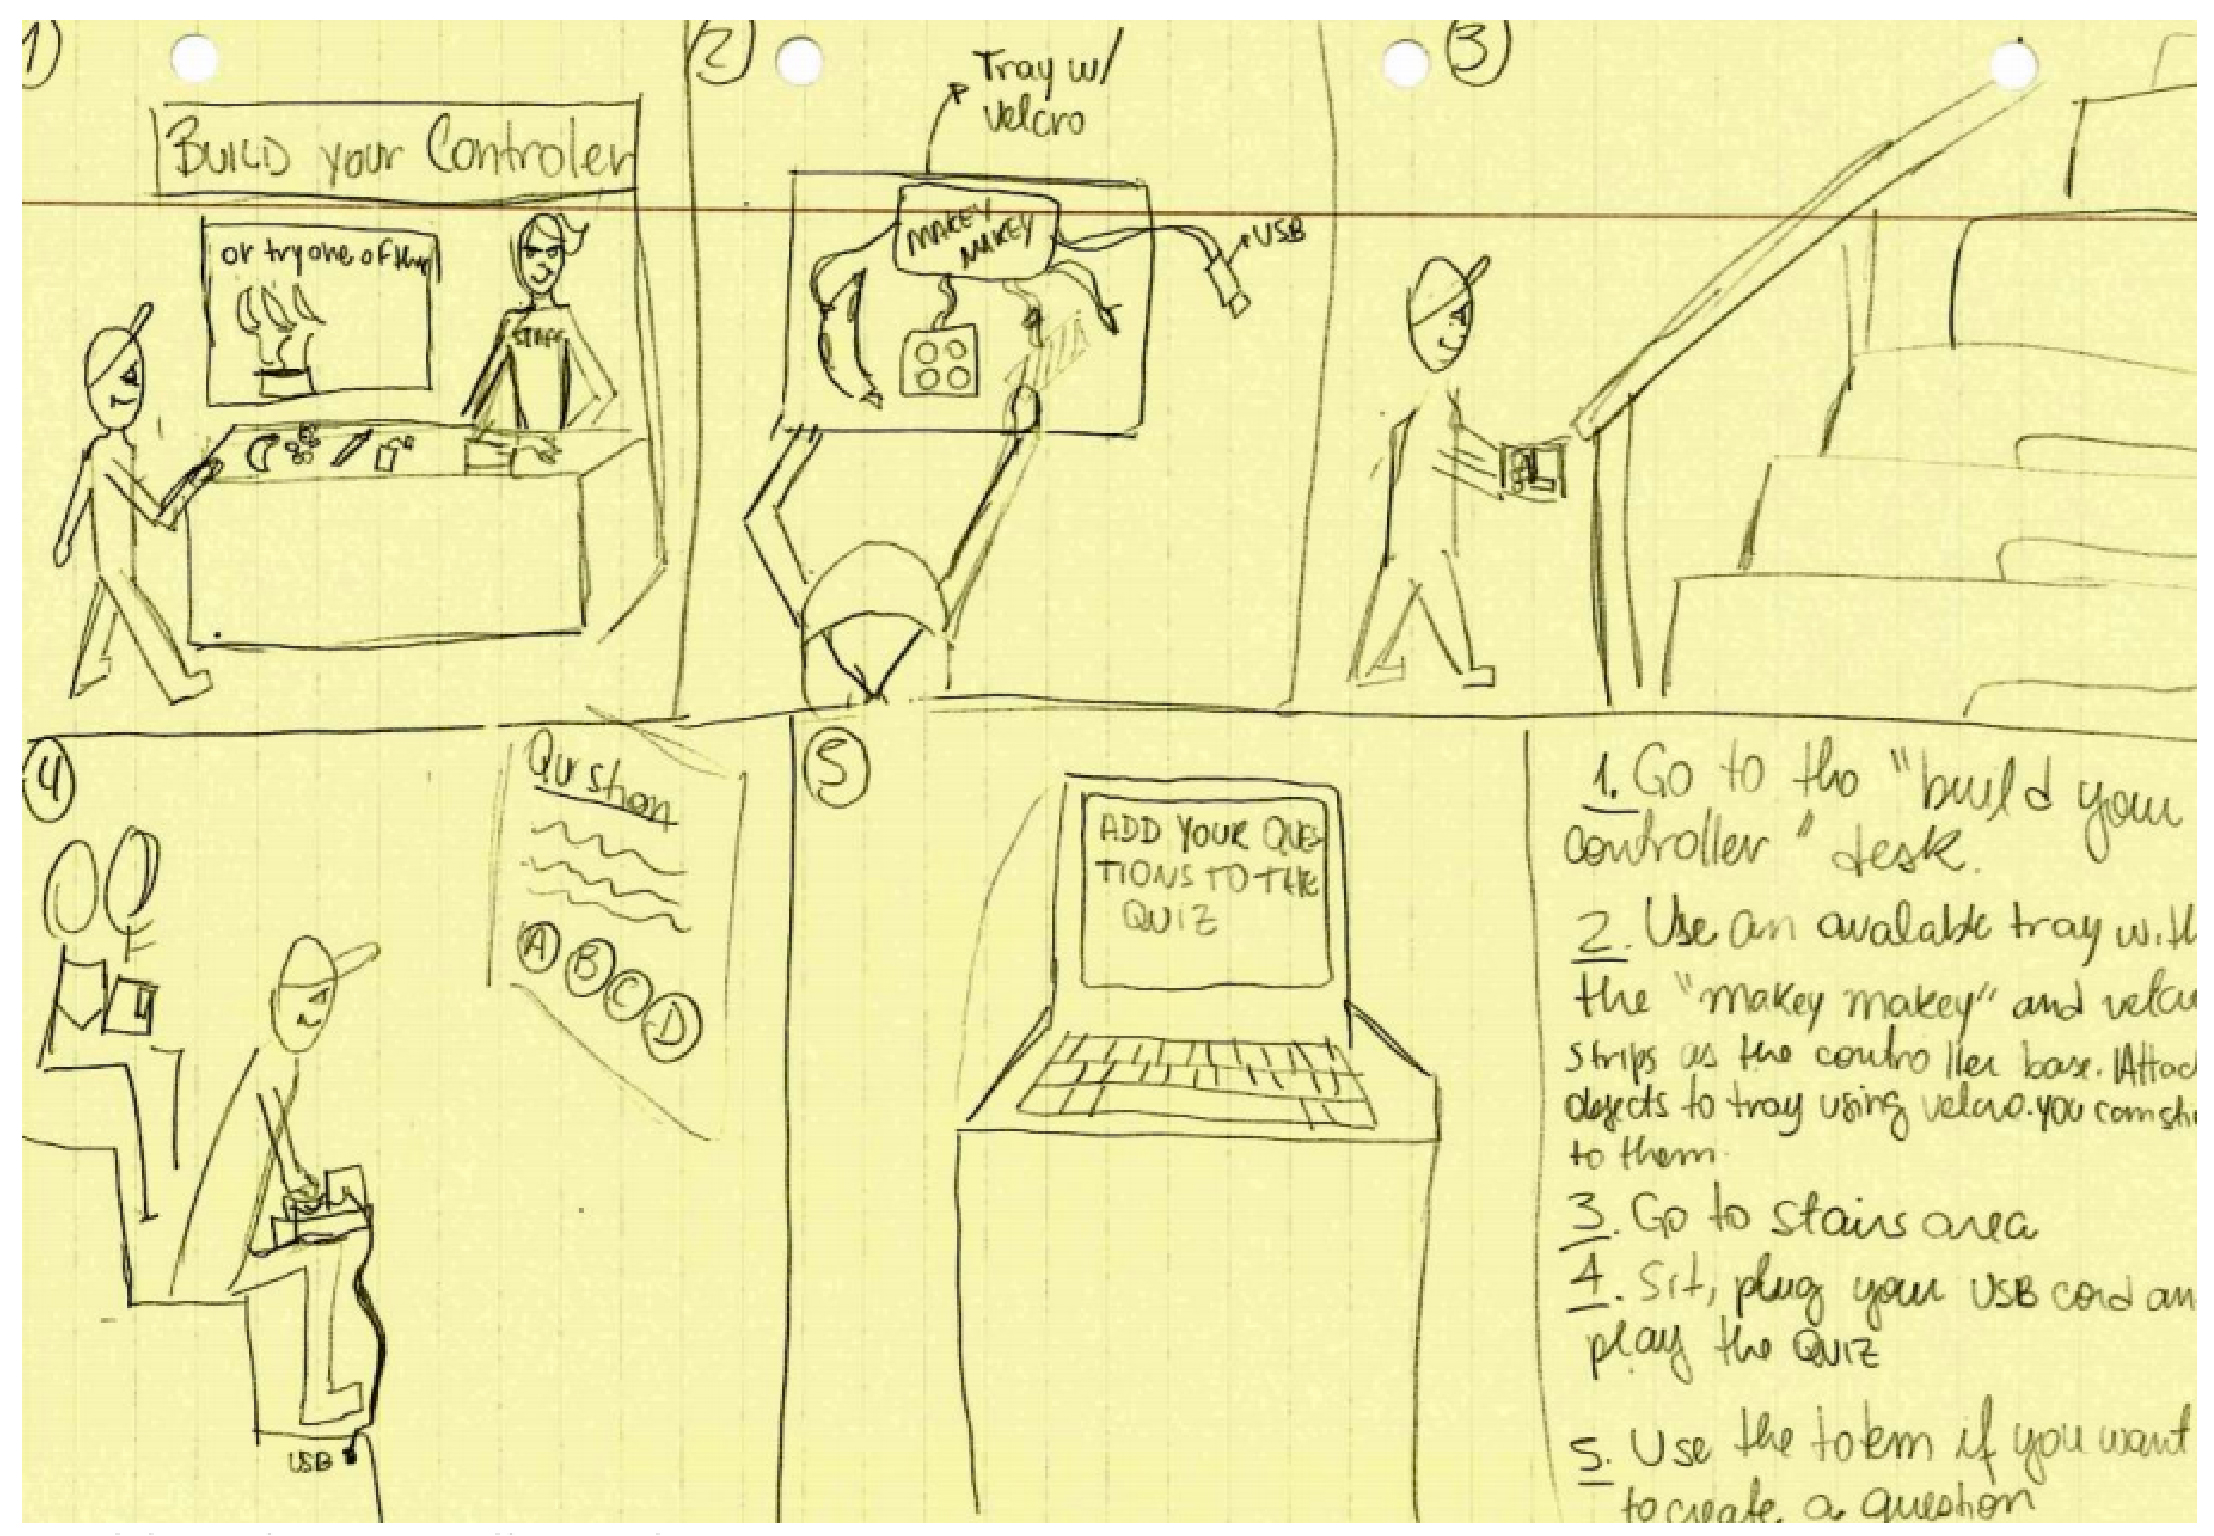 1)
BUILD your Controler
or try one of them
STAFF
2)
Tray w/
Velcro
MAKEY
MAKEY
USB
3
4
Qustion
A B C D
USB
5
ADD YOUR QUES
TIONS TO THE
QUIZ
1. Go to the "build your
controller" desk.
2. Use an avalable tray with
the "makey makey" and velcr
strips as the controller base. Attac
objects to tray using velcro. you can sti
to them.
3. Go to stairs area
4. Sit, plug your USB cord an
play the QUIZ
5. Use the totem if you want
to create a question